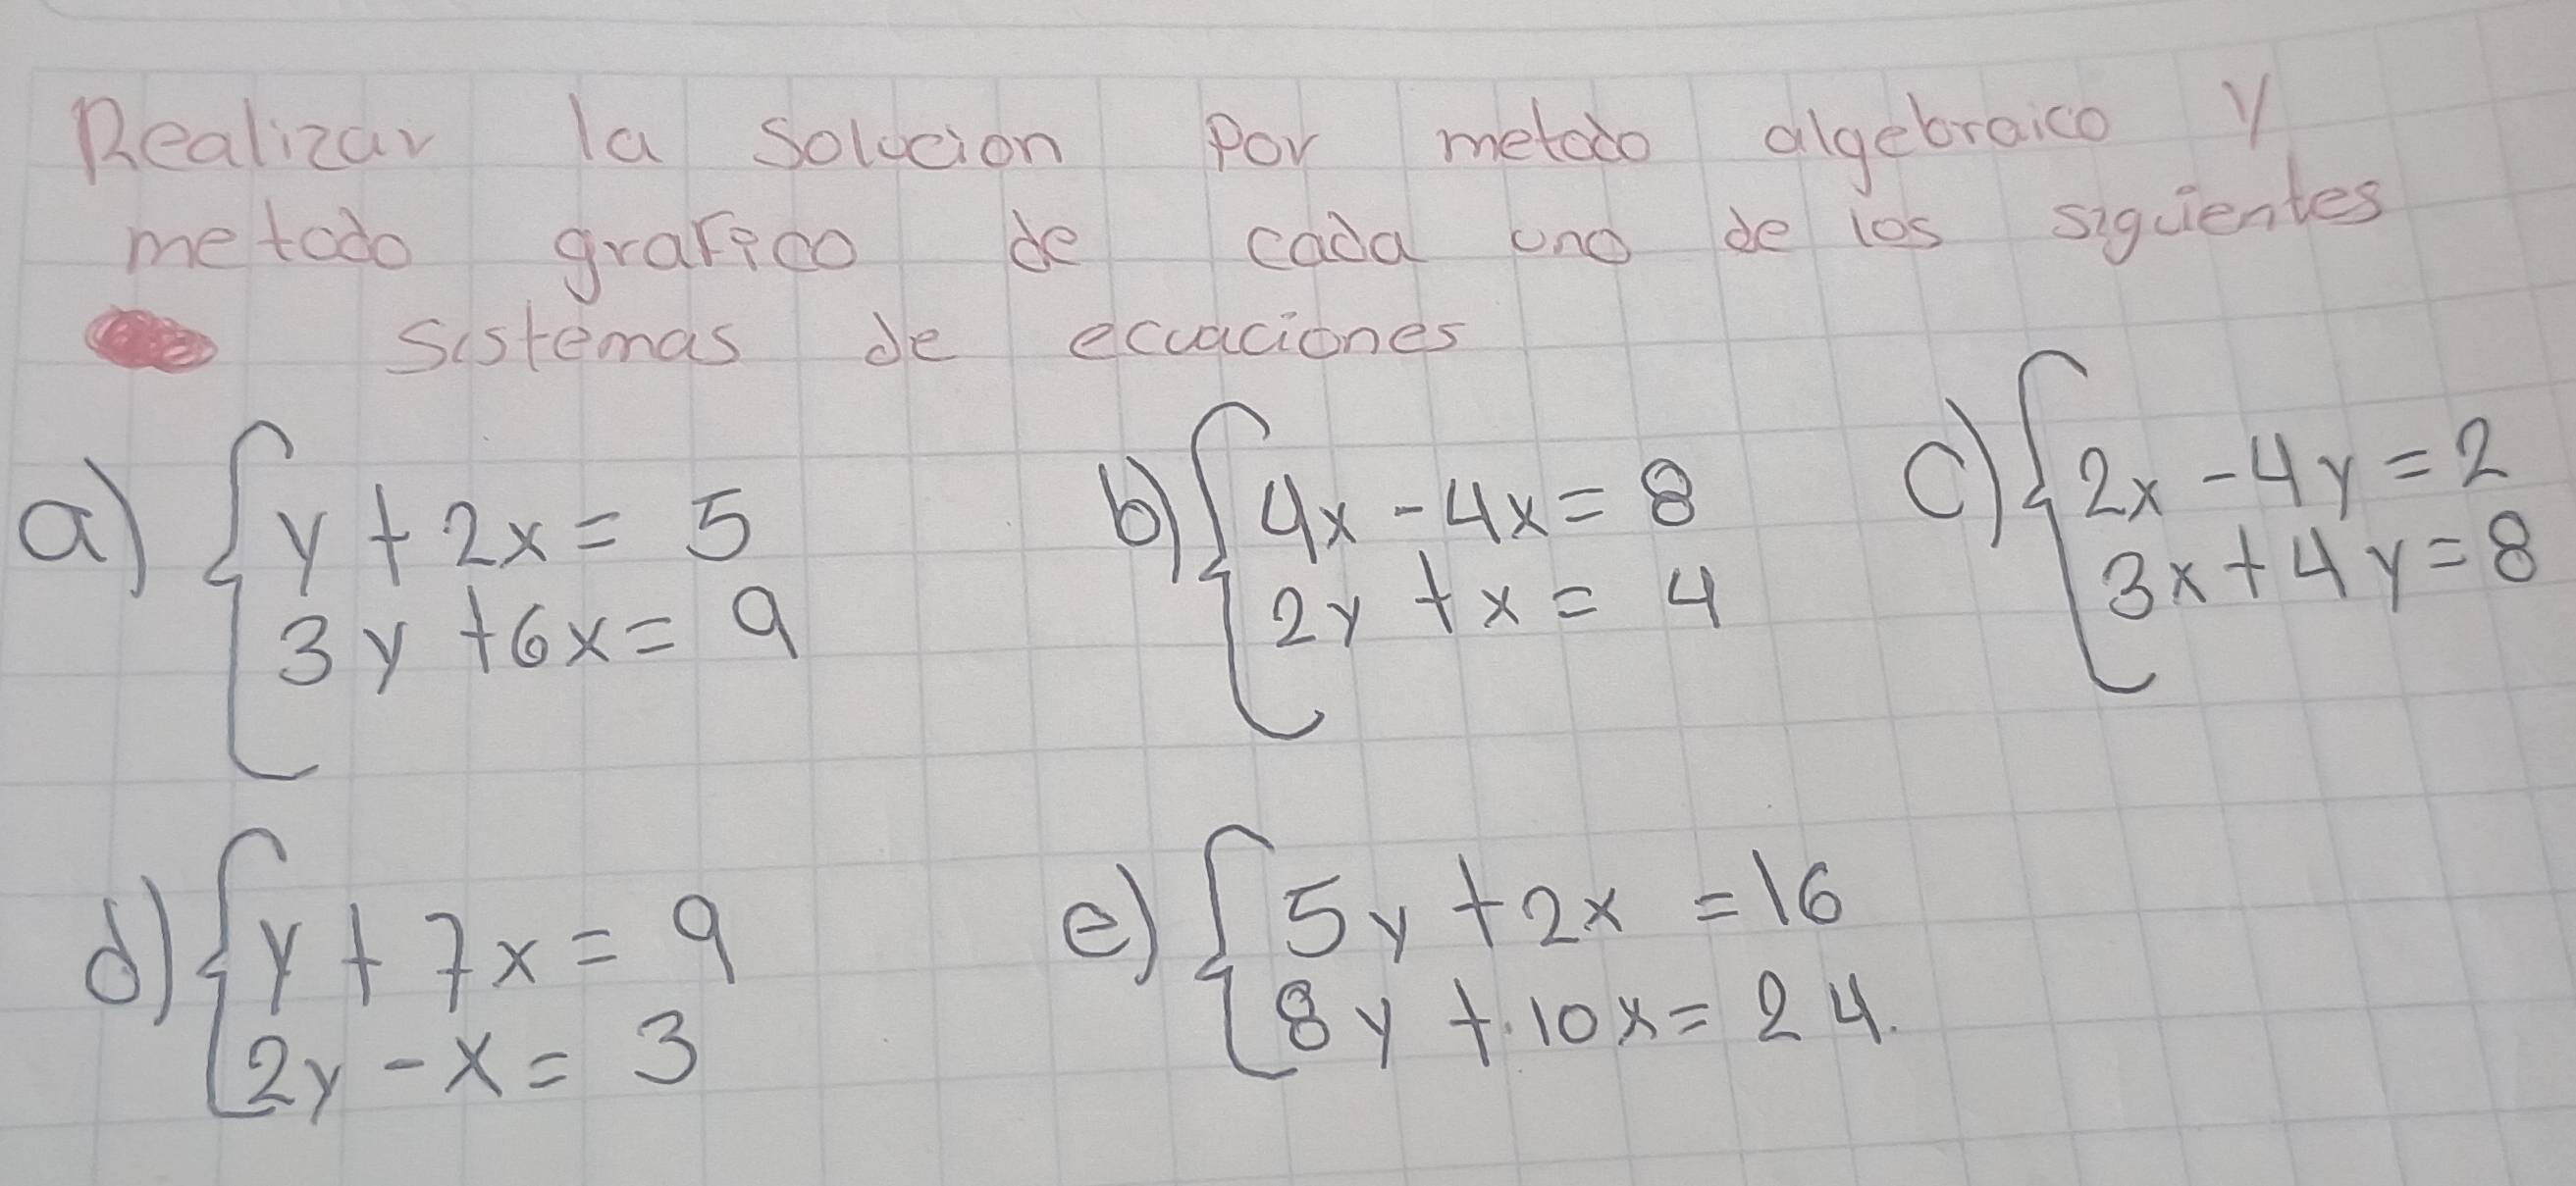 Realizar la Solucion Por metodo algebraico y
metodo grafico de cada uno de los siguientes
sistemas de ecuaciones
a) { y + 2x = 5
3y + 6x = 9
b) { 4x - 4x = 8
2y + x = 4
c) { 2x - 4y = 2
3x + 4y = 8
d) { y + 7x = 9
2y - x = 3
e) { 5y + 2x = 16
8y + 10x = 24.